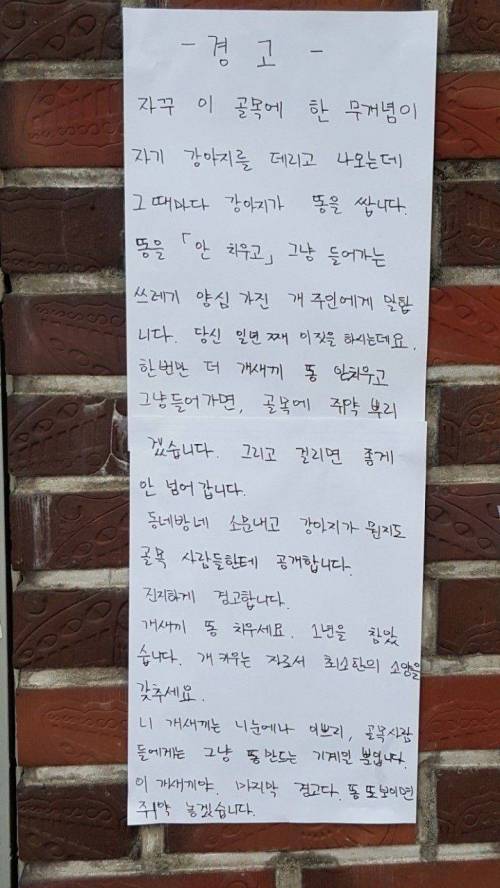 - 경 고 -
자꾸 이 골목에 한 무개념이
자기 강아지를 데리고 나오는데
그 때마다 강아지가 똥을 쌉니다.
똥을 「안 치우고」 그냥 들어가는
쓰레기 양심 가진 개 주인에게 말합
니다. 당신 일년 째 이짓을 하시는데요.
한번만 더 개새끼 똥 안치우고
그냥들어가면, 골목에 쥐약 뿌리
겠습니다. 그리고 걸리면 좋게
안 넘어 갑니다.
동네방네 소문내고 강아지가 뭔지도
골목 사람들한테 공개합니다.
진지하게 경고합니다.
개새끼 똥 치우세요. 1년을 참았
습니다. 개 키우는 자로서 최소한의 소양을
갖추세요.
니 개새끼는 니눈에나 이쁘지, 골목사람
들에게는 그냥 똥만드는 기계일 뿐입니다.
이 개새끼야. 마지막 경고다. 똥 또보이면
쥐약 놓겠습니다.